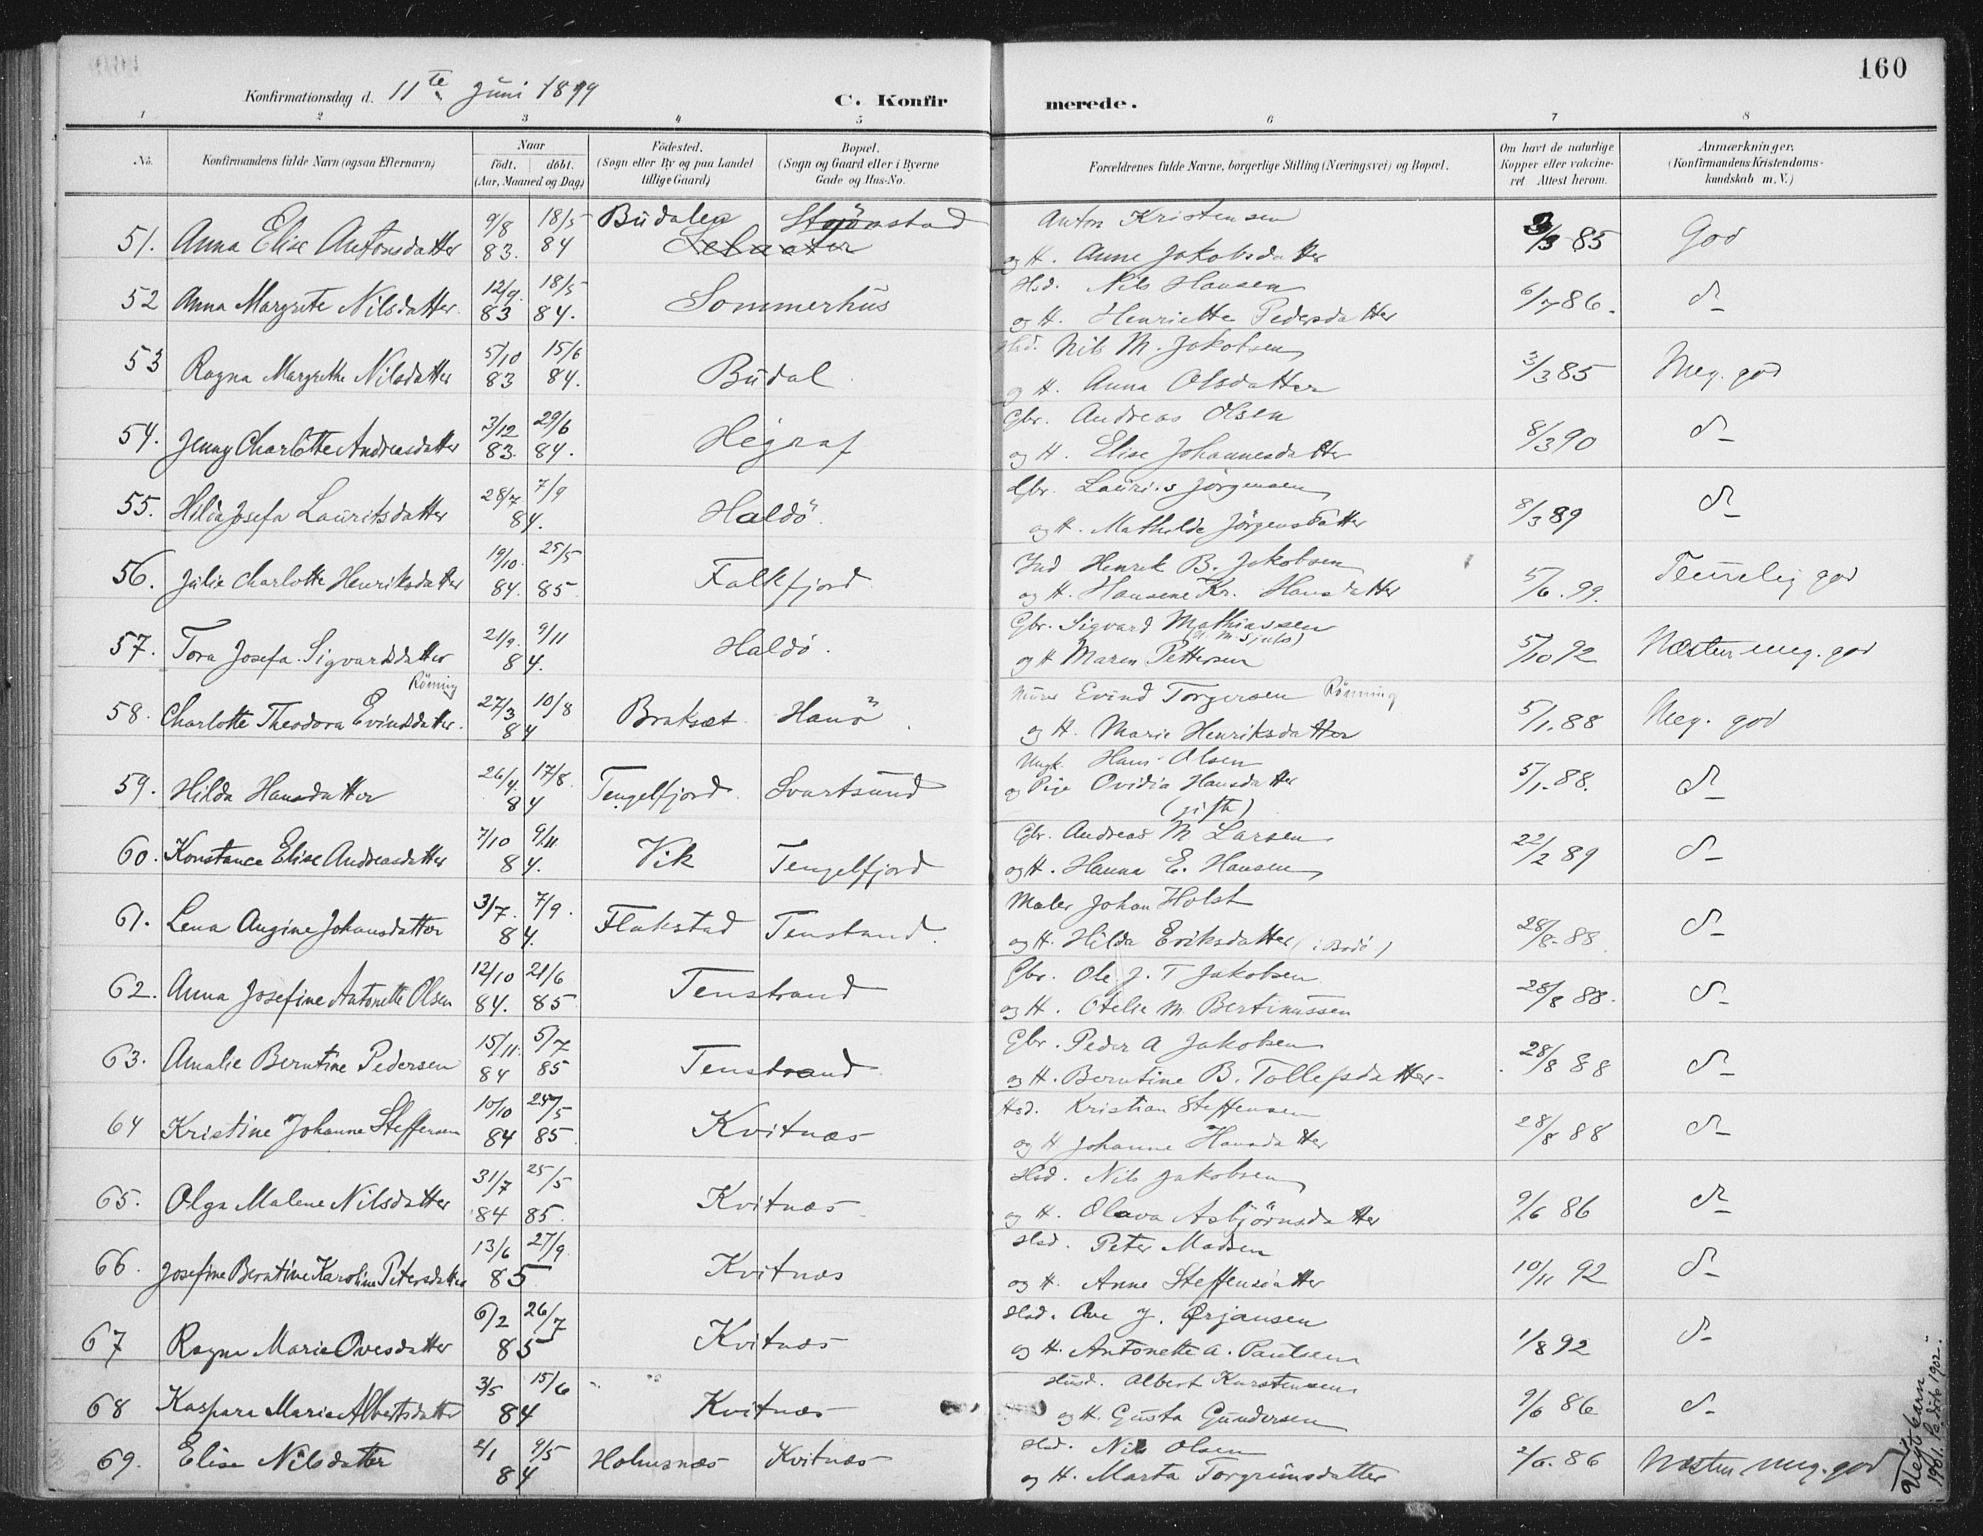 160
Konfirmationsdag d. 11te Juni 1899
C. Konfirmerede.
1 2 3 4 5 6 7 8
No. Konfirmandens fulde Navn (ogsaa Efternavn) Naar födt. döbt. (Aar, Maaned og Dag) Födested. (Sogn eller By og paa Landet tillige Gaard) Bopæl. (Sogn og Gaard eller i Byerne Gade og Hus-No. Forældrenes fulde Navne, borgerlige Stilling (Næringsvei) og Bopæl. Om havt de naturlige Kopper eller vaccineret. Attest herom. Anmærkninger. (Konfirmandens Kristendomskundskab m. V.)
51. Anna Elise Antonsdatter 9/8 83. 18/5 84 Budalen Anton Kristensen og H. Anne Jakobsdatter 3/3 85 God
52 Anna Margrete Nilsdatter 12/9 83 18/5 84. Sommerhus Hsd. Nils Hansen og H. Henriette Pedersdatter 6/7 86. d-
53 Ragna Margrethe Nilsdatter 5/10 83 15/6 84. Budal Hsd. Nils M. Jakobsen og H. Anna Olsdatter 3/3 85 Meg. god
54. Jenny Charlotte Andreasdatter 3/12 83. 29/6 84. Hegraf Gbr. Andreas Olsen og H. Elise Johannesdatter 8/3 90 d-
55. Hilda Josefa Lauritsdatter 28/7 7/9 84. Haldö. Gbr. Laurits Jörgensen og H. Mathilde Jörgensdatter 8/3 89 d-
56. Julie Charlotte Henriksdatter 19/10. 84. 25/5 85 Falkfjord Ind Henrik B. Jakobsen og H. Hansene Kr. Hansdatter 5/6. 99. Temmelig god
57. Tora Josefa Sigvardsdatter 21/9. 9/11 84. Haldö. Gbr. Sigvard Mathiassen og H Maren Pettersen 5/10 92 Næsten meg. god
58. Charlotte Theodora Evindsdatter Rönning 27/3 10/8 84 Braksæt Hanö Evind Torgersen Rönning og H. Marie Henriksdatter 5/1. 88 Meg. god
59. Hilda Hansdatter 26/4. 17/8. 84 Tengelfjord Svartsund Ungk. Hans Olsen og Pige Ovidia Hansdatter (gift) 5/1. 88. d-
60. Konstance Elise Andreasdatter 7/10 9/11 84. Vik Tengelfjord Gbr. Andreas M Larsen og H. Hanna E. Hansen 22/2 89 d-
61. Lena Angine Johansdatter 3/7. 7/9. 84. Flakstad Tenstrand Maler Johan Holst og H. Hilda Eriksdatter (i Bodö) 28/8. 88 d-
62. Anna Josefine Antonette Olsen 12/10 84. 21/6 85 Tenstrand Gbr. Ole J. T Jakobsen og H. Otelie M Bertinussen 28/8 88. d-
63. Amalie Berntine Pedersen 15/11. 84 5/7 85 Tenstrand Gbr. Peder A Jakobsen og H. Berntine B. Tollefsdatter 28/8 88 d-
64 Kristine Johanne Steffensen 10/10 84 25/5 85 Kvitnæs Hsd. Kristian Steffensen og H Johanne Hansdatter 28/8 88 d-
65. Olga Malene Nilsdatter 31/7 84 25/5 85. Kvitnæs Hsd. Nils Jakobsen og H. Olava Asbjörnsdatter 9/6 86 d-
66. Josefine Berntine Karoline Petersdatter 13/6 27/9. 85 Kvitnæs Hsd. Peter Madsen og H. Anne Steffensdatter 10/11 92 d-
67 Ragna Marie Ovesdatter 6/2 26/7 85 Kvitnæs Hsd. Ove J. Ørjansen og H. Antonette A. Paulsen 1/8 92 d-
68 Kaspara Marie Albertsdatter 3/5 15/6 84 Kvitnæs Husd. Albert Karstensen og H. Gusta Gundersen 9/6 86 d-
69. Elise Nilsdatter 2/1 9/5 84 Holmsnæs Kvitnæs Hsd. Nils Olsen og H. Marta Torgrimsdatter 2/6. 86 Næsten meg. god